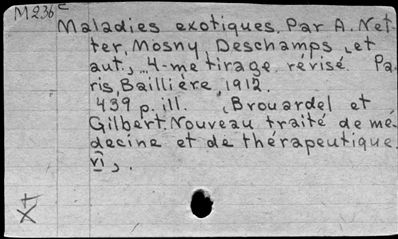 M236c
Maladies exotiques. Par A. Net-
ter, Mosny, Deschamps, et
aut., ... 4-me tirage révisé. Pa-
ris, Baillière, 1912.
439 p. ill. (Brouardel et
Gilbert. Nouveau traité de mé-
decine et de thérapeutique.
VI).
XI